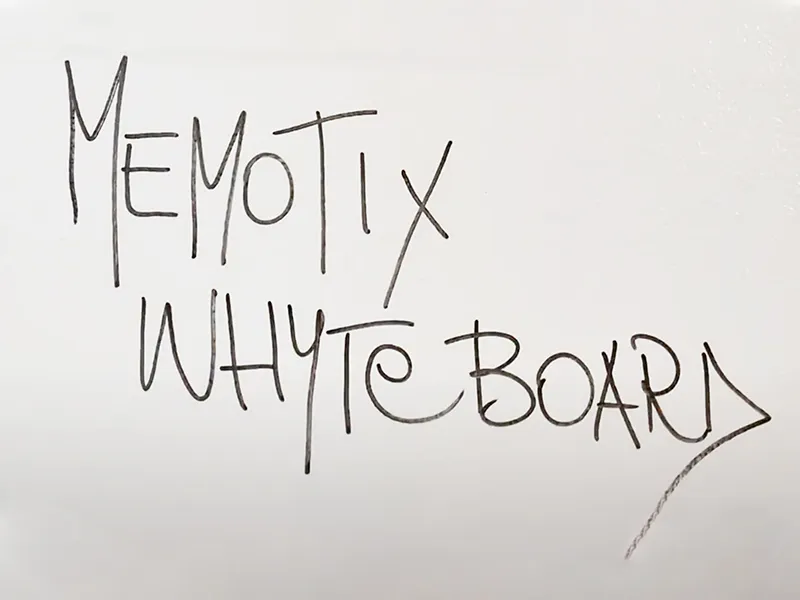 MEMOTIX
WHYTEBOARD